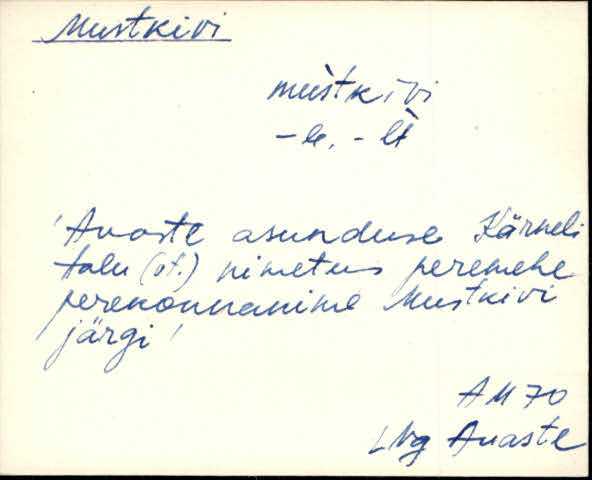 Mustkivi
mùstkivi
-le, -lt
'Avaste asunduse Kärneli
talu (vt.) nimetus peremehe
perekonnanime Mustkivi
järgi'
AM 70
LNg Avaste